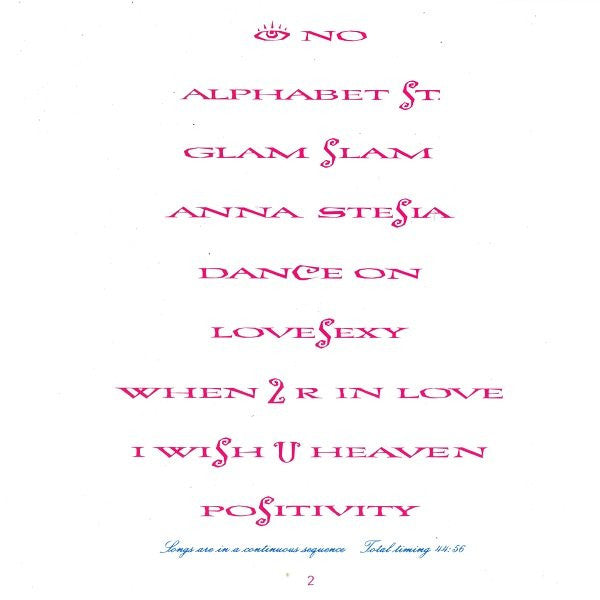 👁 NO
ALPHABET ST.
GLAM SLAM
ANNA STESIA
DANCE ON
LOVESEXY
WHEN 2 R IN LOVE
I WISH U HEAVEN
POSITIVITY
Songs are in a continuous sequence Total timing 44:56
2